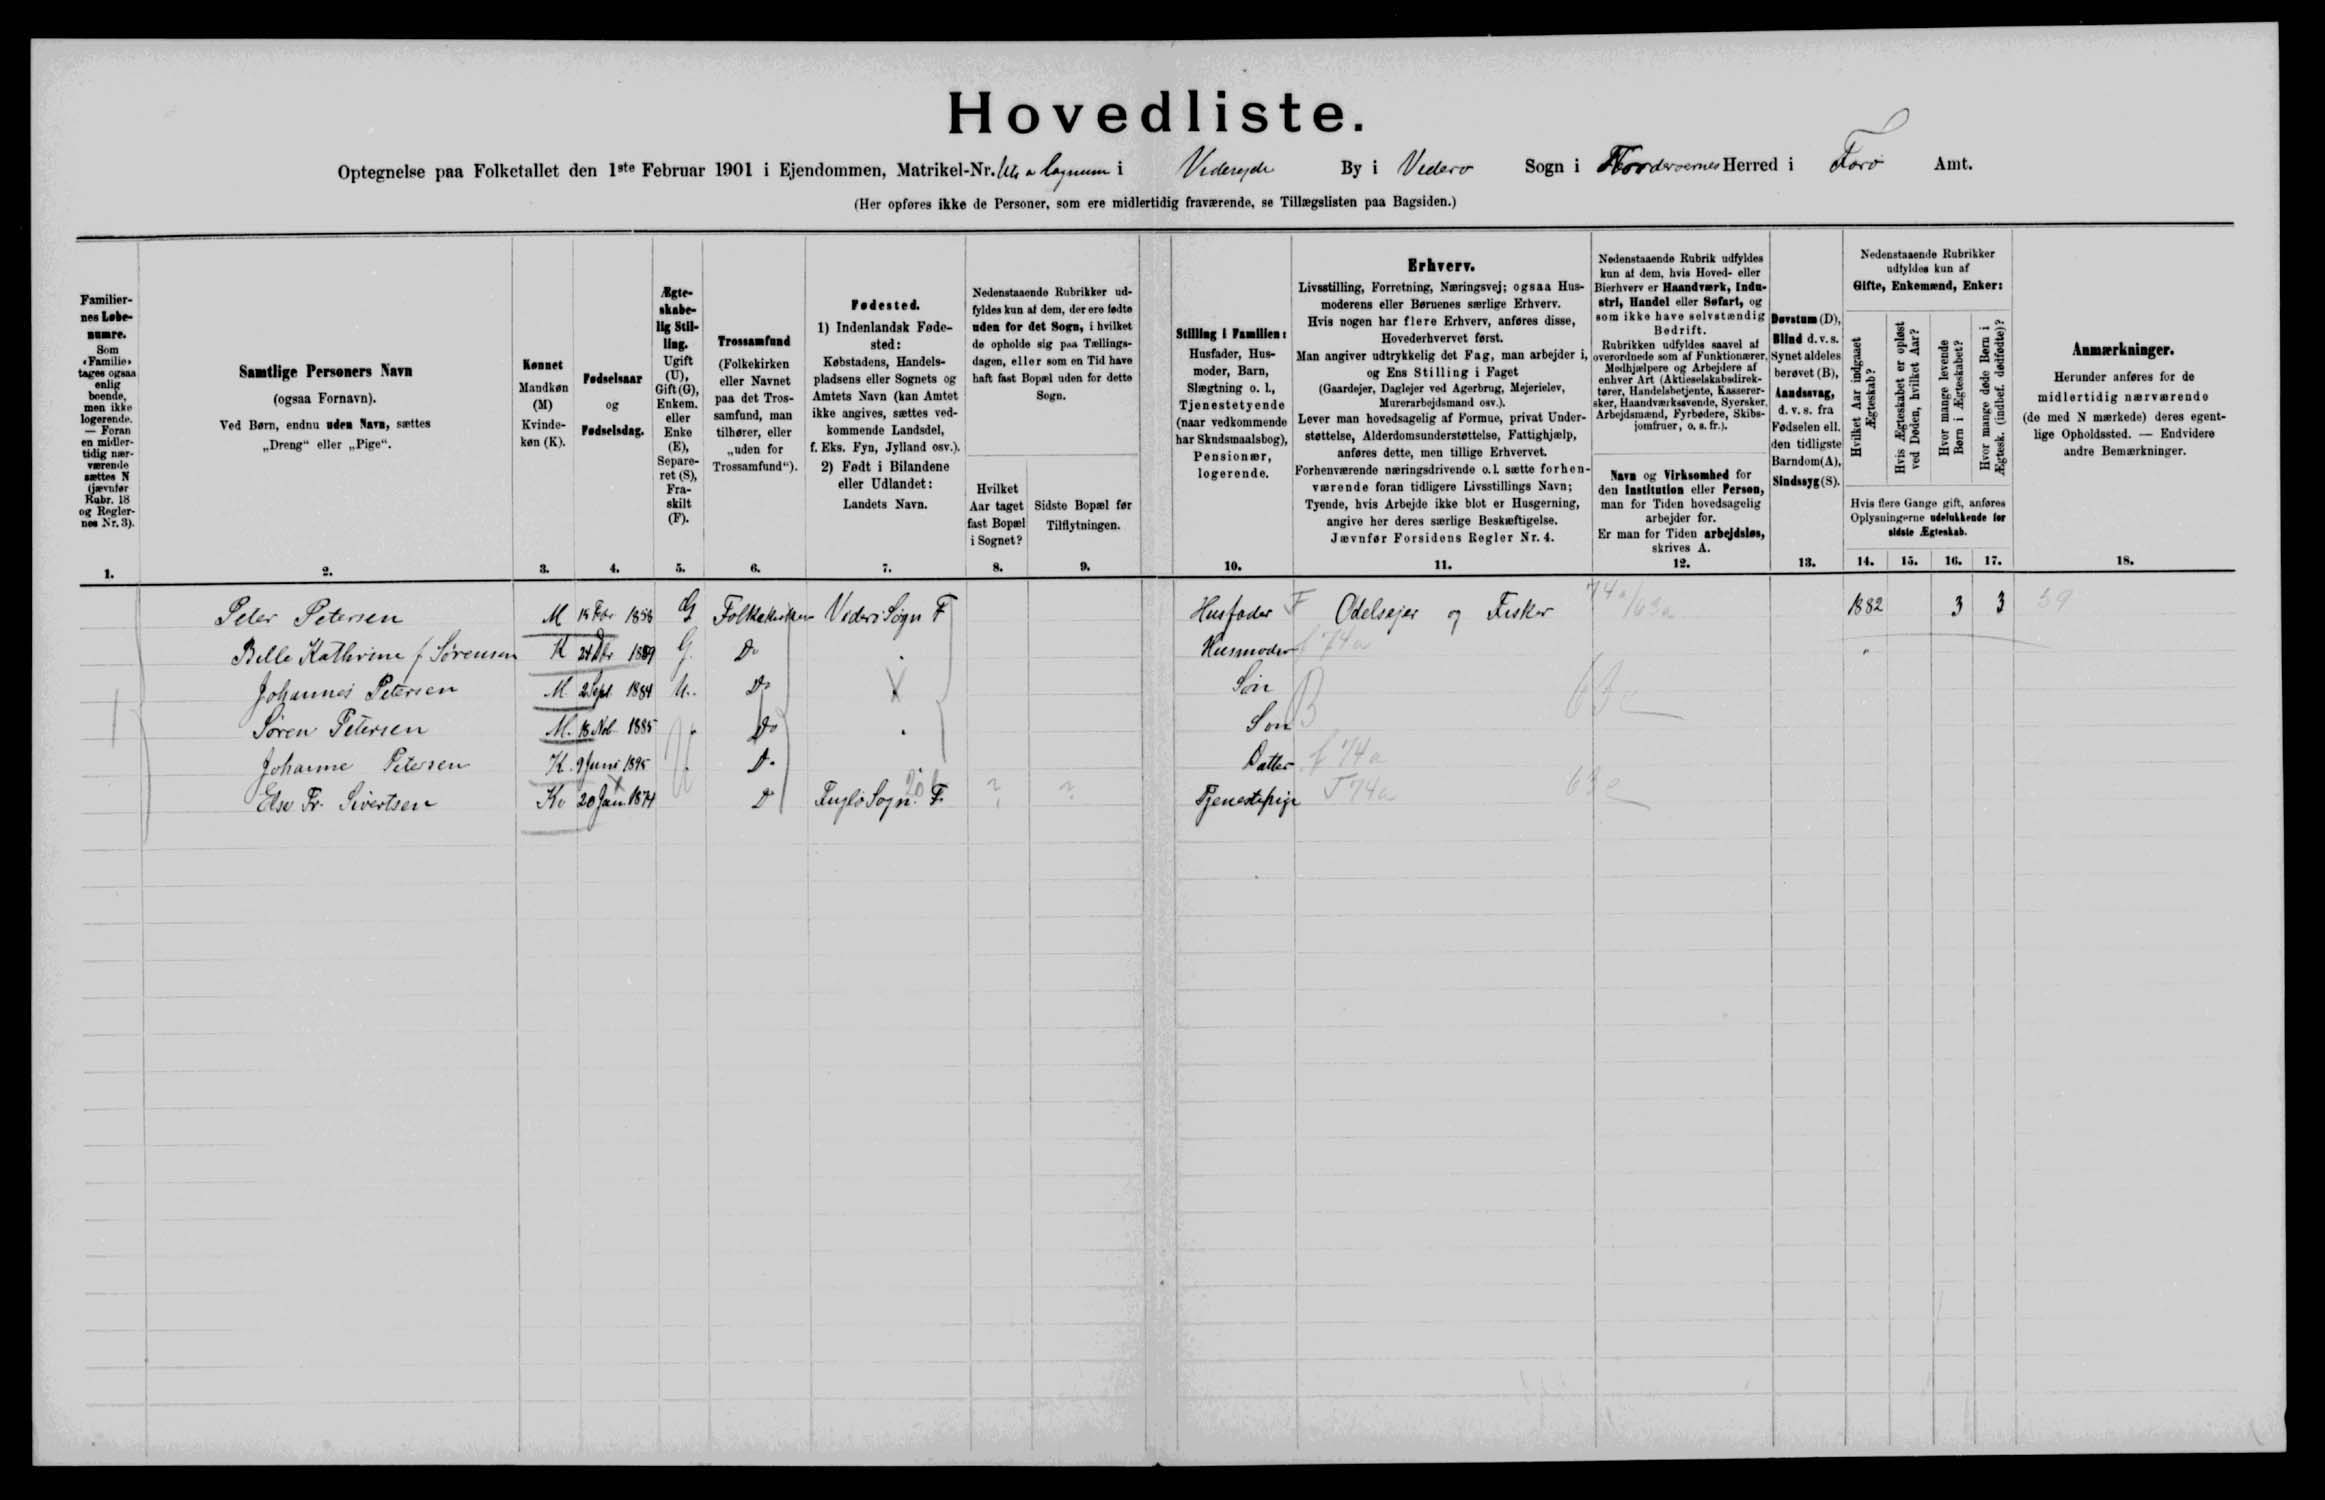 Hovedliste.
Optegnelse paa Folketallet den 1ste Februar 1901 i Ejendommen, Matrikel-Nr. i Viderejde By i Viderø Sogn i Norderøernes Herred i Færø Amt.
(Her opføres ikke de Personer, som ere midlertidig fraværende, se Tillægslisten paa Bagsiden.)
Familiernes Løbenumre.
Som «Familie» tages ogsaa enlig boende, men ikke logerende. — Foran en midlertidig nærværende sættes N (jævnfør Rubr. 18 og Reglernes Nr. 3).
1.
Samtlige Personers Navn
(ogsaa Fornavn).
Ved Børn, endnu uden Navn, sættes
„Dreng“ eller „Pige“.
2.
Kønnet
Mandkøn (M)
Kvindekøn (K).
3.
Fødselsaar
og
Fødselsdag.
4.
Ægteskabelig Stilling.
Ugift (U), Gift (G), Enkem. eller Enke (E), Separeret (S), Fraskilt (F).
5.
Trossamfund
(Folkekirken eller Navnet paa det Trossamfund, man tilhører, eller „uden for Trossamfund“).
6.
Fødested.
1) Indenlandsk Fødested:
Købstadens, Handelspladsens eller Sognets og Amtets Navn (kan Amtet ikke angives, sættes vedkommende Landsdel, f. Eks. Fyn, Jylland osv.).
2) Født i Bilandene eller Udlandet:
Landets Navn.
7.
Nedenstaaende Rubrikker udfyldes kun af dem, der ere fødte uden for det Sogn, i hvilket de opholde sig paa Tællingsdagen, eller som en Tid have haft fast Bopæl uden for dette Sogn.
Hvilket Aar taget fast Bopæl i Sognet?
8.
Sidste Bopæl før Tilflytningen.
9.
Stilling i Familien:
Husfader, Husmoder, Barn, Slægtning o. l., Tjenestetyende (naar vedkommende har Skudsmaalsbog), Pensionær, logerende.
10.
Erhverv.
Livsstilling, Forretning, Næringsvej; ogsaa Husmoderens eller Børnenes særlige Erhverv.
Hvis nogen har flere Erhverv, anføres disse, Hovederhvervet først.
Man angiver udtrykkelig det Fag, man arbejder i, og Ens Stilling i Faget
(Gaardejer, Daglejer ved Agerbrug, Mejerielev, Murerarbejdsmand osv.).
Lever man hovedsagelig af Formue, privat Understøttelse, Alderdomsunderstøttelse, Fattighjælp, anføres dette, men tillige Erhvervet.
Forhenværende næringsdrivende o. l. sætte forhenværende foran tidligere Livsstillings Navn;
Tyende, hvis Arbejde ikke blot er Husgerning, angive her deres særlige Beskæftigelse.
Jævnfør Forsidens Regler Nr. 4.
11.
Nedenstaaende Rubrik udfyldes kun af dem, hvis Hoved- eller Bierhverv er Haandværk, Industri, Handel eller Søfart, og som ikke have selvstændig Bedrift.
Rubrikken udfyldes saavel af overordnede som af Funktionærer, Medhjælpere og Arbejdere af enhver Art (Aktieselskabsdirektører, Handelsbetjente, Kasserersker, Haandværkssvende, Syersker, Arbejdsmænd, Fyrbødere, Skibsjomfruer, o. s. fr.).
Navn og Virksomhed for den Institution eller Person, man for Tiden hovedsagelig arbejder for.
Er man for Tiden arbejdsløs, skrives A.
12.
Døvstum (D), Blind d. v. s. Synet aldeles berøvet (B), Aandssvag, d. v. s. fra Fødselen ell. den tidligste Barndom (A), Sindssyg (S).
13.
Nedenstaaende Rubrikker udfyldes kun af
Gifte, Enkemænd, Enker:
Hvilket Aar indgaaet Ægteskab?
Hvis Ægteskabet er opløst ved Døden, hvilket Aar?
Hvor mange levende Børn i Ægteskabet?
Hvor mange døde Børn i Ægtesk. (indbef. dødfødte)?
Hvis flere Gange gift, anføres Oplysningerne udelukkende for sidste Ægteskab.
14. 15. 16. 17.
Anmærkninger.
Herunder anføres for de midlertidig nærværende (de med N mærkede) deres egentlige Opholdssted. — Endvidere andre Bemærkninger.
18.
Peter Petersen M 18 Fbr 1858 G Folkekirken Viderø Sogn F Husfader F Odelsejer og Fisker 74a/63a 1882 3 3 39
Bille Kathrine f Sørensen K 24 Dbr G. Do Husmoder f 74a
1 Johannes Petersen M 2 Sept 1884 U. Do Søn B 63c
Søren Petersen M. 18 Nob 1885 Do Søn
Johanne Petersen K. 9 Juni 1895 D. Datter f 74a
Else Fr. Sivertsen Kv 20 Jan. 1874 D Fuglø Sogn. F. ? ? Tjenestepige T 74a 63c